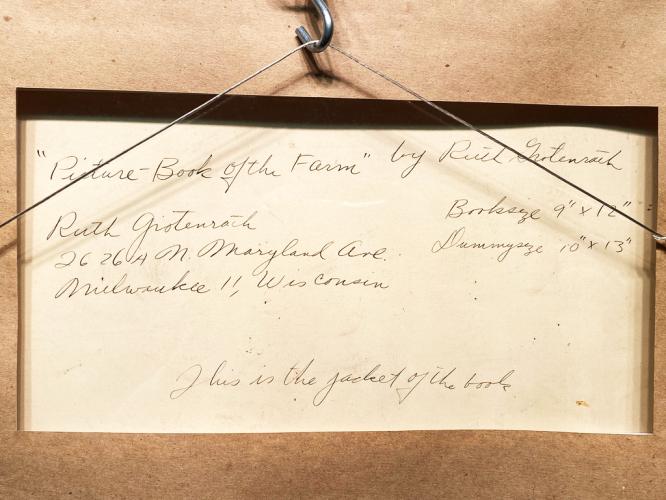 "Picture-Book of the Farm" by Ruth Grotenrath
Booksize 9" x 12"
Dummysize 10" x 13"
Ruth Grotenrath
2626A N. Maryland Ave.
Milwaukee 11, Wisconsin
This is the jacket of the book